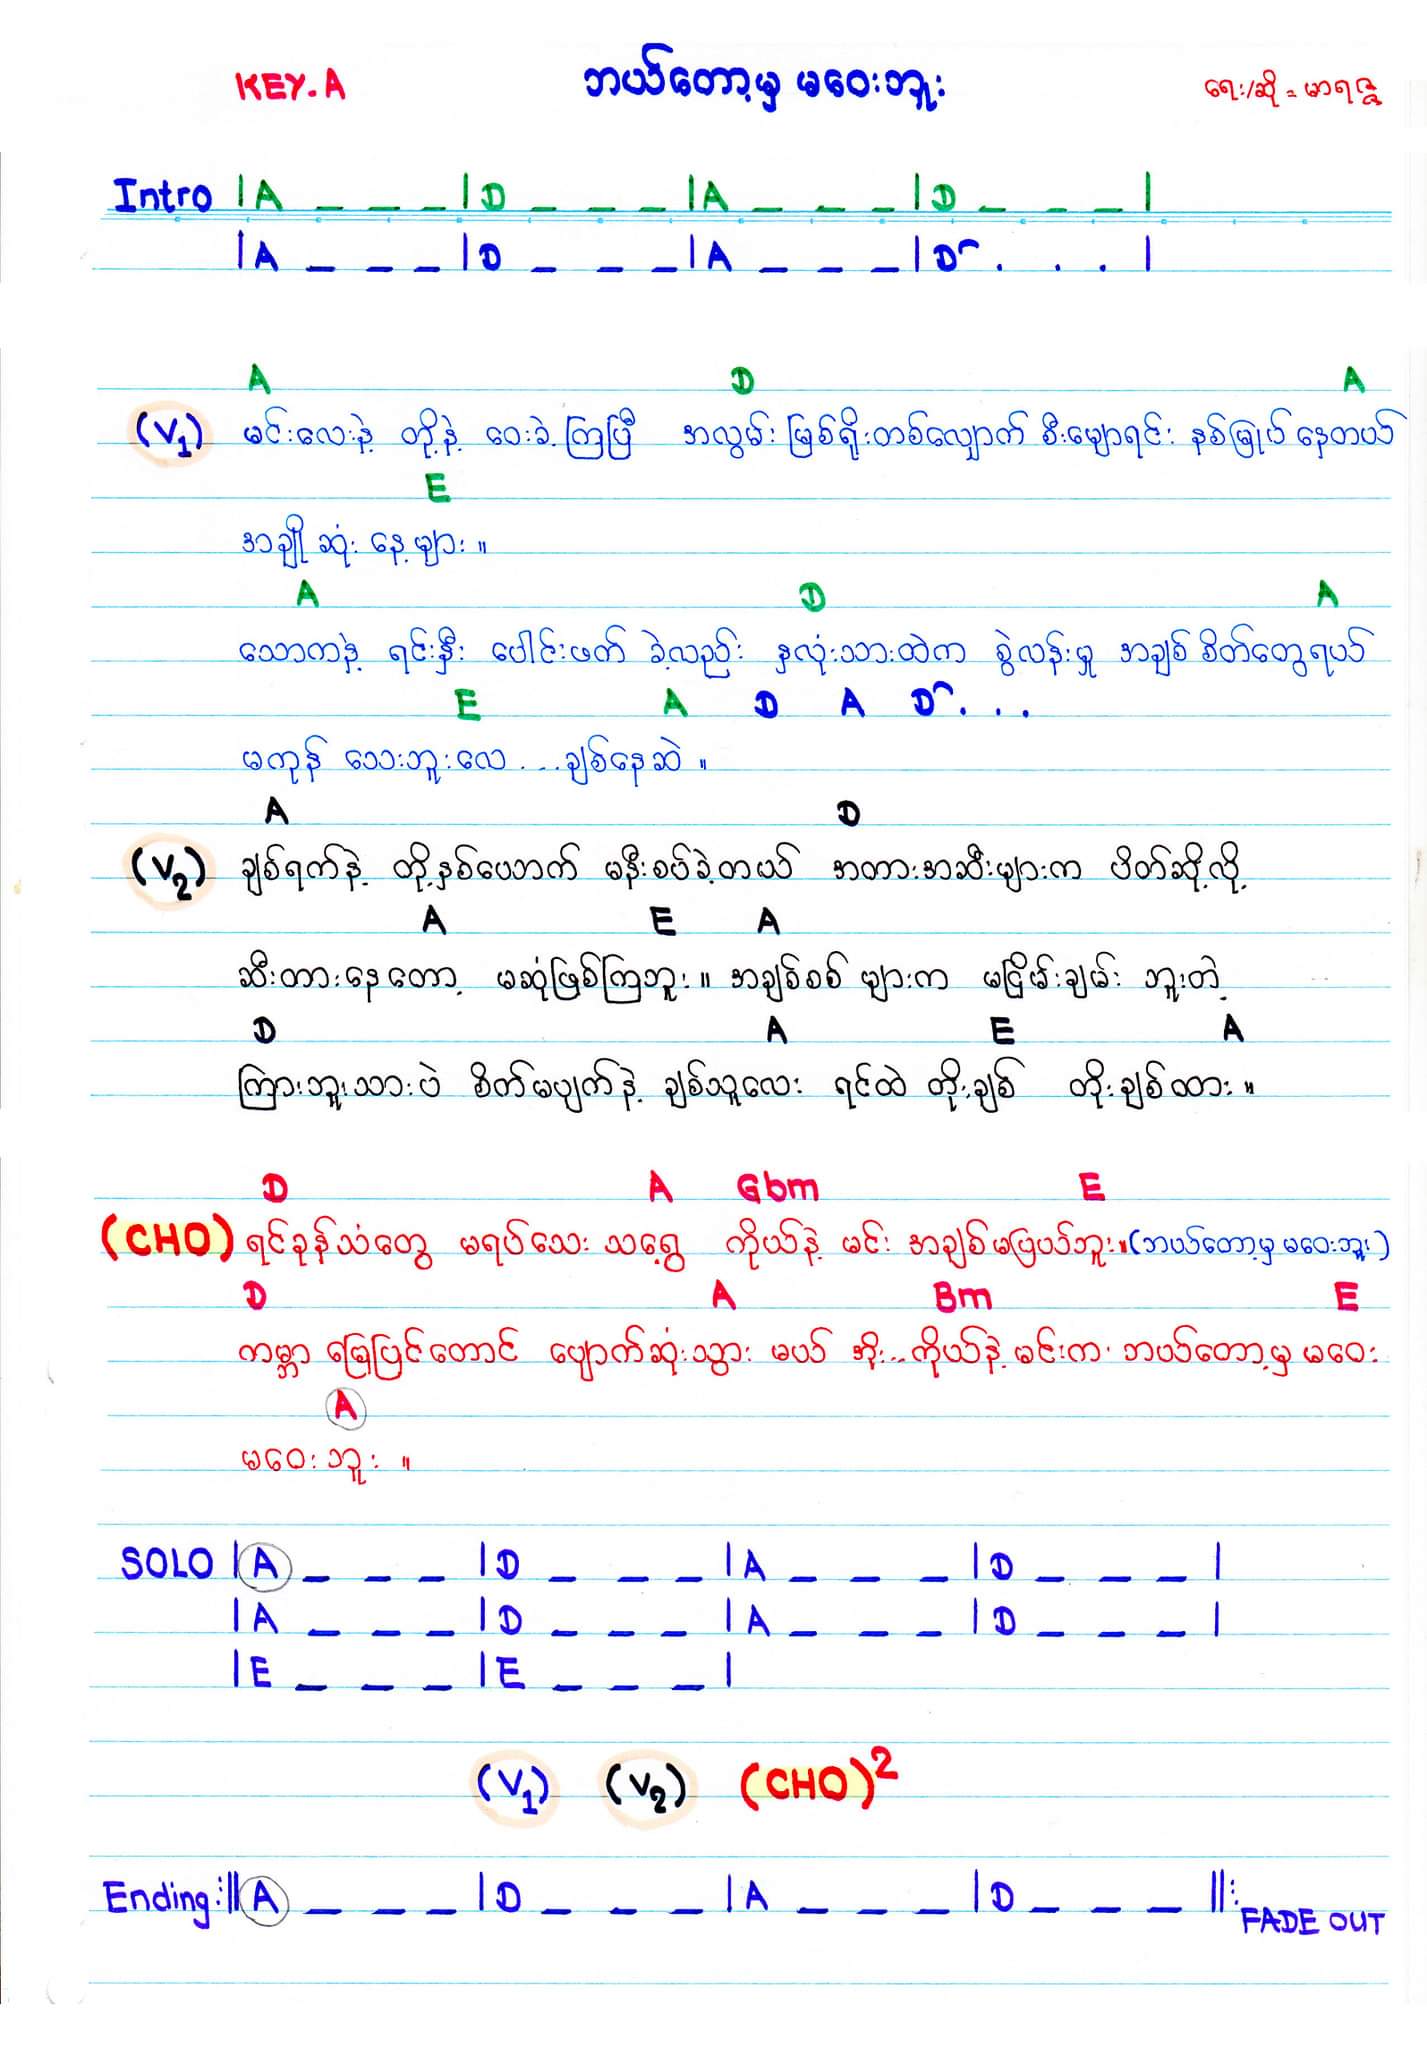 KEY.A ဘယ်တော့မှ မဝေးဘူး ရေး/ဆို = မာရဇ္ဇ
Intro |A _ _ _ |D _ _ _ |A _ _ _ |D _ _ _ |
|A _ _ _ |D _ _ _ |A _ _ _ |D . . . |
A D A
(V1) မင်းလေးနဲ့ တို့နဲ့ ဝေးခဲ့ကြပြီ အလွမ်းမြစ်ရိုးတစ်လျှောက် စီးမျောရင်း နစ်မြုပ်နေတယ်
E
အချိုဆုံး နေ့များ ။
A D A
သောကနဲ့ ရင်းနှီး ပေါင်းဖက် ခဲ့လည်း နှလုံးသားထဲက စွဲလန်းမှု အချစ်စိတ်တွေရယ်
E A D A D . . .
မကုန် သေးဘူးလေ ...ချစ်နေဆဲ ။
A D
(V2) ချစ်ရက်နဲ့ တို့နှစ်ယောက် မနီးစပ်ခဲ့တယ် အတားအဆီးများက ပိတ်ဆို့လို့
A E A
ဆီးတားနေတော့ မဆုံဖြစ်ကြဘူး ။ အချစ်စစ် များက မငြိမ်းချမ်း ဘူးတဲ့
D A E A
ကြားဘူးသားပဲ စိတ်မပျက်နဲ့ ချစ်သူလေး ရင်ထဲ တိုးချစ် တိုးချစ်ထား ။
D A Gbm E
(CHO) ရင်ခုန်သံတွေ မရပ်သေး သရွေ့ ကိုယ်နဲ့ မင်း အချစ်မပြယ်ဘူး ။ (ဘယ်တော့မှ မဝေးဘူး)
D A Bm E
ကမ္ဘာ မြေပြင်တောင် ပျောက်ဆုံးသွား မယ် အိုး...ကိုယ်နဲ့ မင်းက ဘယ်တော့မှ မဝေး
A
မဝေးဘူး ။
SOLO |A _ _ _ |D _ _ _ |A _ _ _ |D _ _ _ |
|A _ _ _ |D _ _ _ |A _ _ _ |D _ _ _ |
|E _ _ _ |E _ _ _ |
(V1) (V2) (CHO)²
Ending :||A _ _ _ |D _ _ _ |A _ _ _ |D _ _ _ ||:
FADE OUT